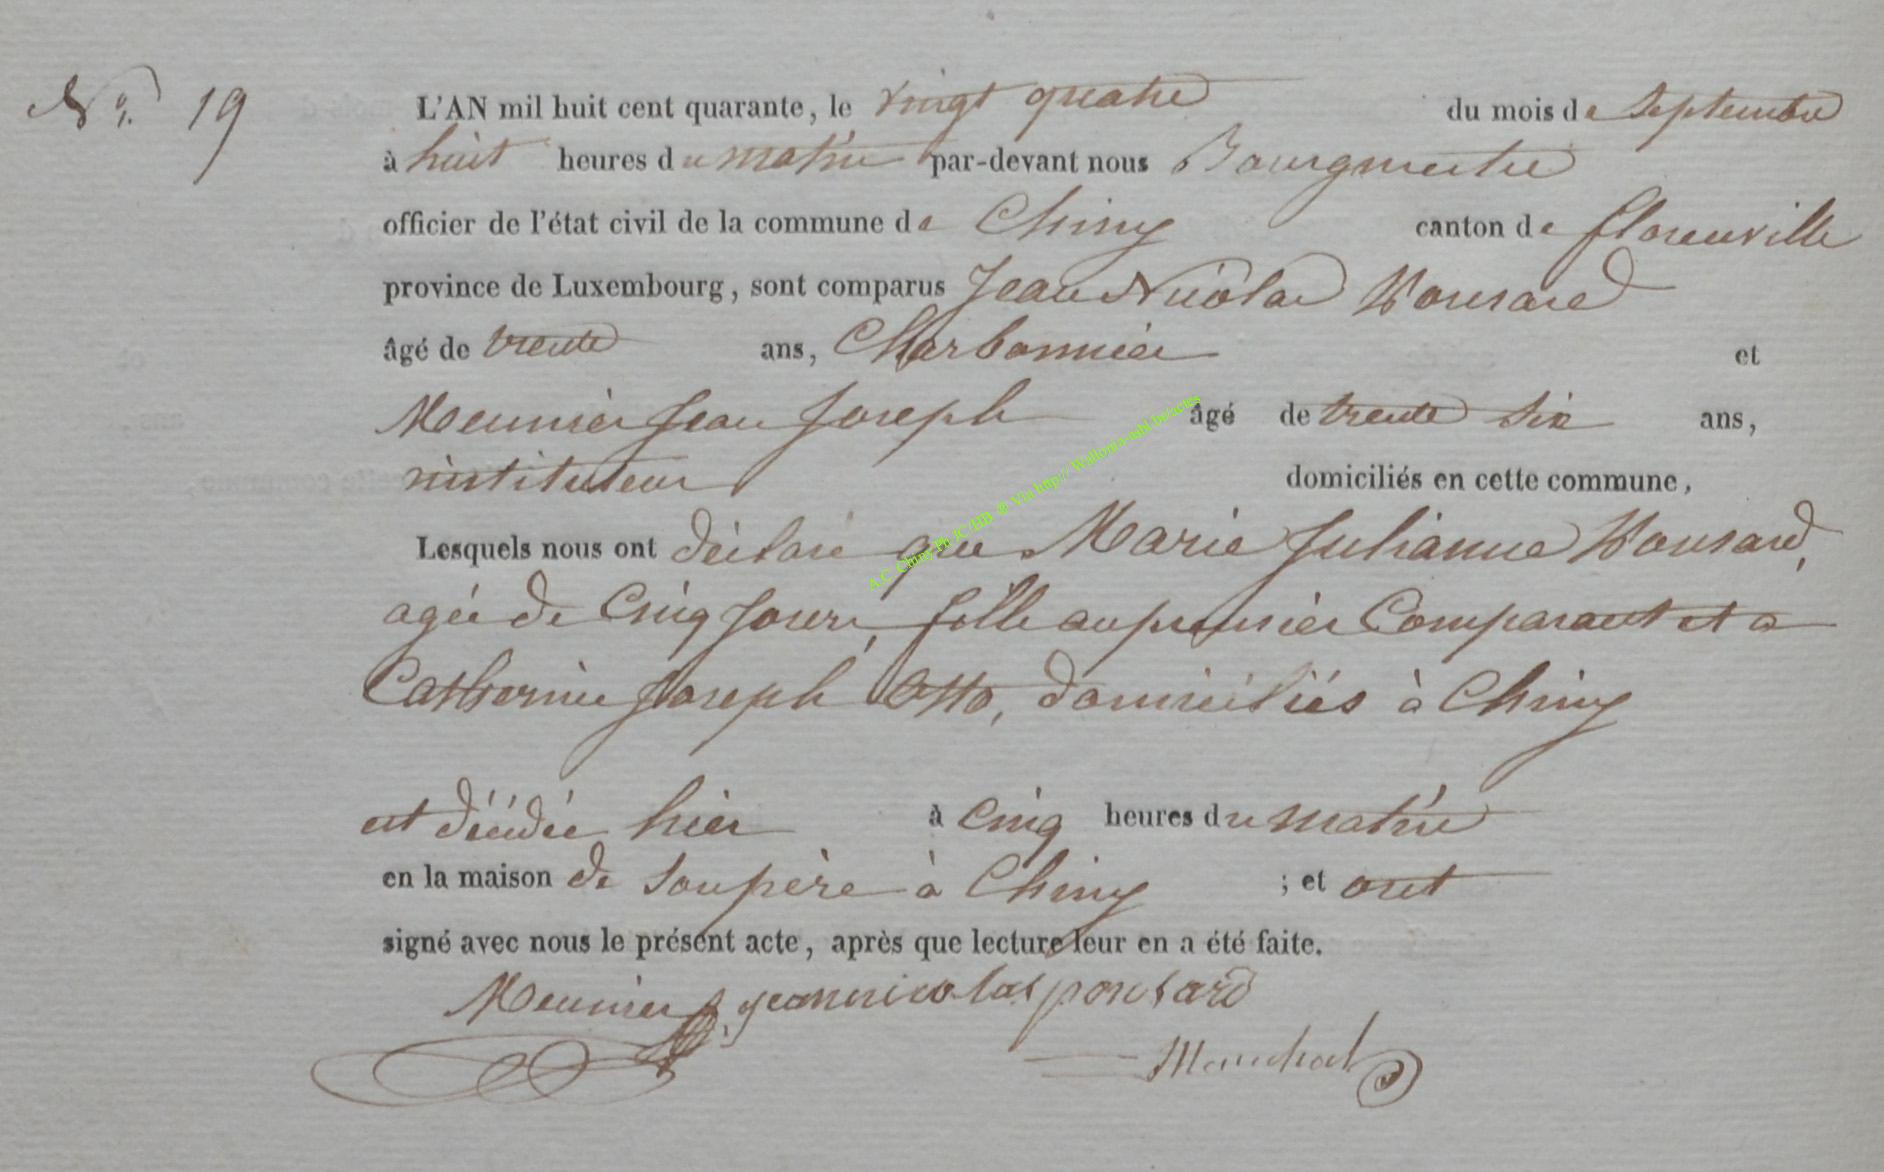 N°. 19
L'AN mil huit cent quarante, le vingt quatre du mois de septembre
à huit heures du matin par-devant nous Bourgmestre
officier de l'état civil de la commune de Chiny canton de florenville
province de Luxembourg, sont comparus Jean Nicolas Ponsard
âgé de trente ans, Charbonnier et
Meunier Jean Joseph âgé de trente six ans,
instituteur domiciliés en cette commune,
Lesquels nous ont déclaré que Marie Julianne Ponsard,
agée de Cinq Jours, fille au premier Comparant et a
Catherine Joseph Otto, domiciliés à Chiny
est décédée hier à cinq heures du matin
en la maison de son père à Chiny ; et ont
signé avec nous le présent acte, après que lecture leur en a été faite.
Meunier jean nicolas ponsard
Marechal
A.C. Chiny Ph JC/BB @ Via http:// Wallonia-asbl.be/actes